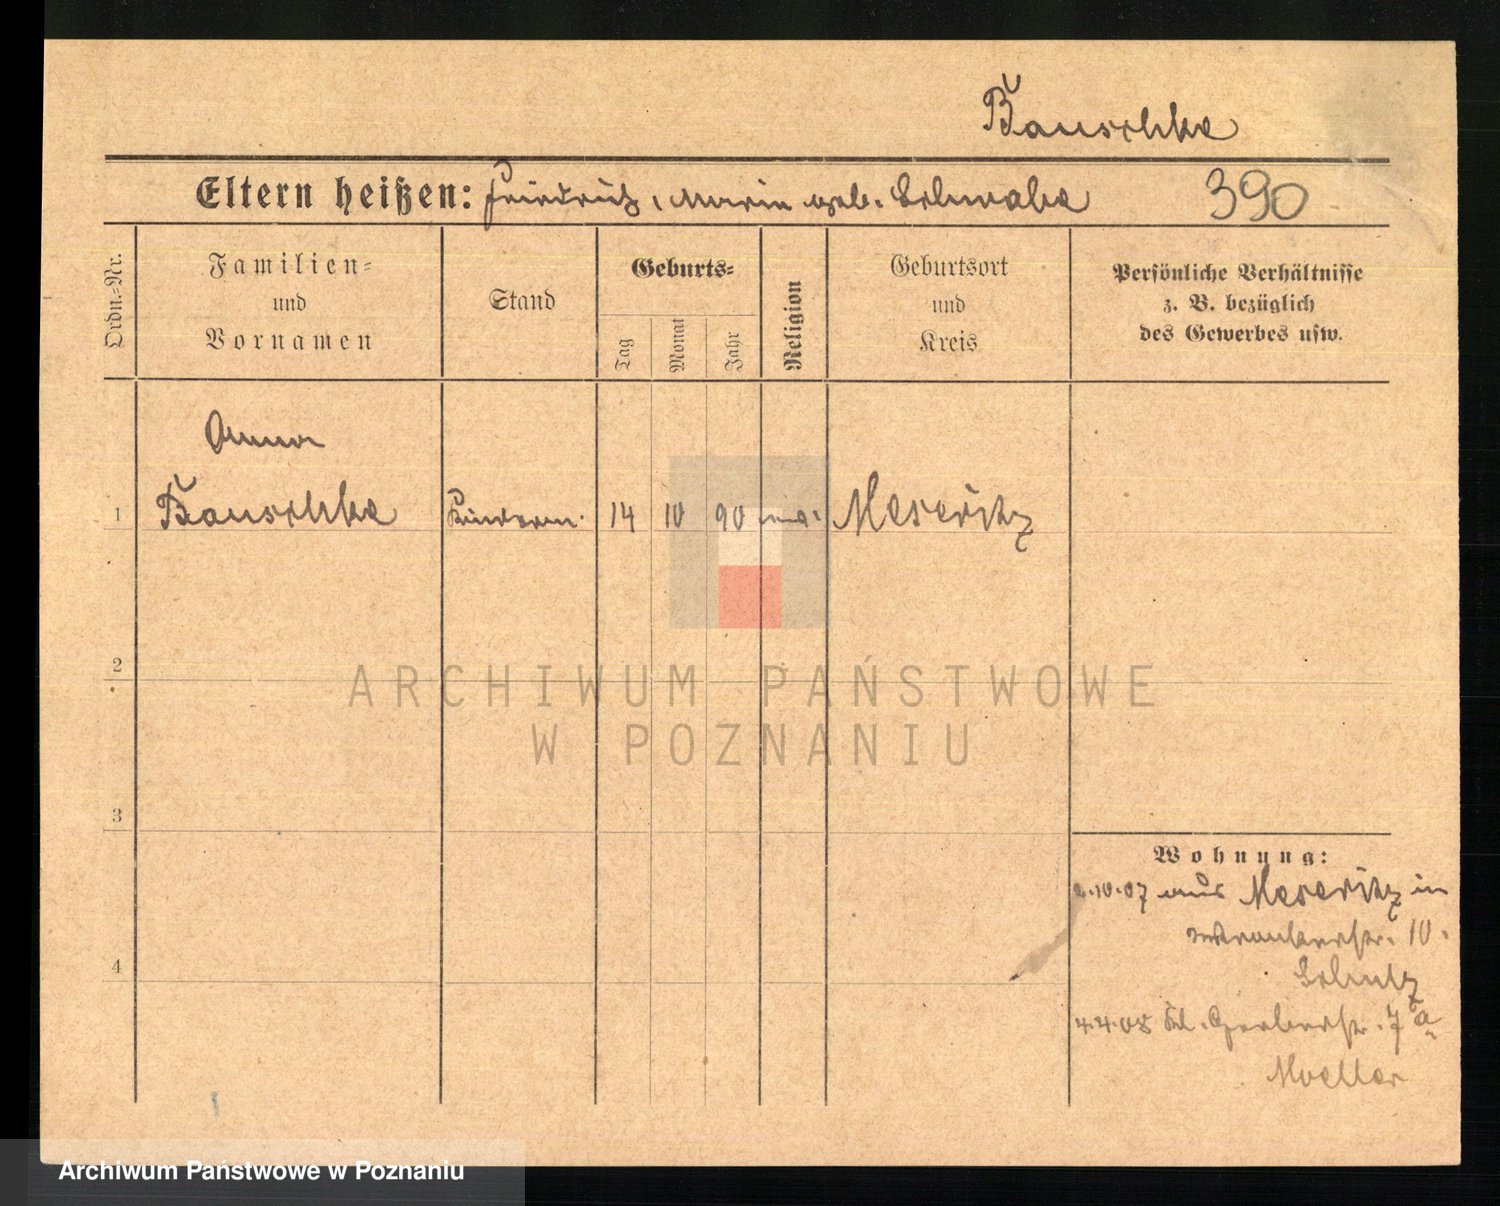 Bauschke
Eltern heißen: Friedrich, Marie geb. Schwabe 390
Ordn.-Nr.
Familien-
und
Vornamen
Stand
Geburts-
Tag
Monat
Jahr
Religion
Geburtsort
und
Kreis
Persönliche Verhältnisse
z. B. bezüglich
des Gewerbes usw.
Anna
1 Bauschke 14 10 90 Meseritz
2
3
4
Wohnung:
2.10.07 aus Meseritz in
10.
Schulz
4.4.08 Kl. Gerberstr. 7a
Moeller
ARCHIWUM PAŃSTWOWE
W POZNANIU
Archiwum Państwowe w Poznaniu